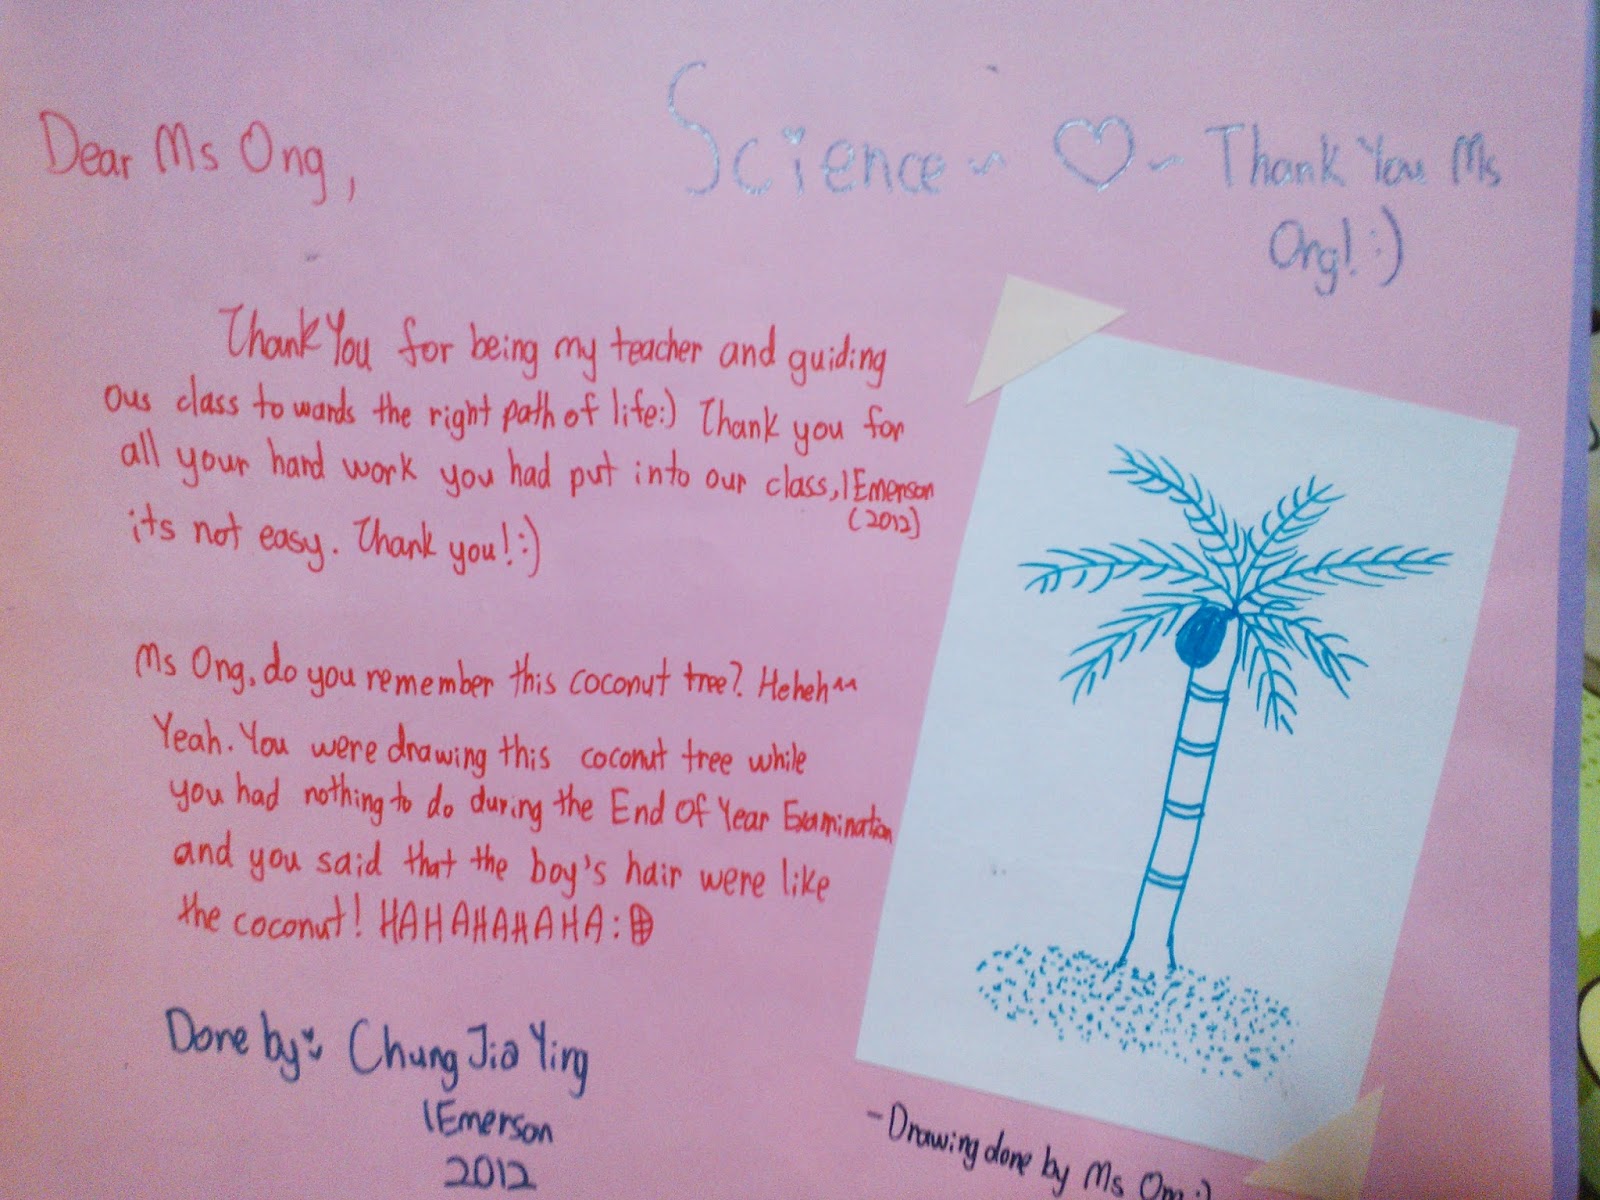 Dear Ms Ong,
Science ~ ♡ ~ Thank You Ms
Ong! :)
Thank You for being my teacher and guiding
ous class towards the right path of life:) Thank you for
all your hard work you had put into our class, 1Emerson
(2012)
its not easy. Thank you! :)
Ms Ong, do you remember this coconut tree? Heheh^^
Yeah. You were drawing this coconut tree while
you had nothing to do during the End Of Year Examination
and you said that the boy's hair were like
the coconut! HAHAHAHAHA :D
Done by: Chung Jia Ying
1Emerson
2012
- Drawing done by Ms Ong :)